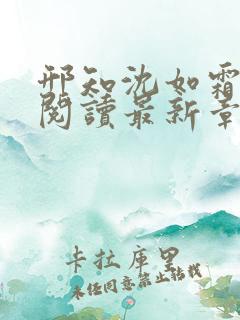 邢知沈如霜
閱讀最新章
卡拉庫里
未经同意禁止转载